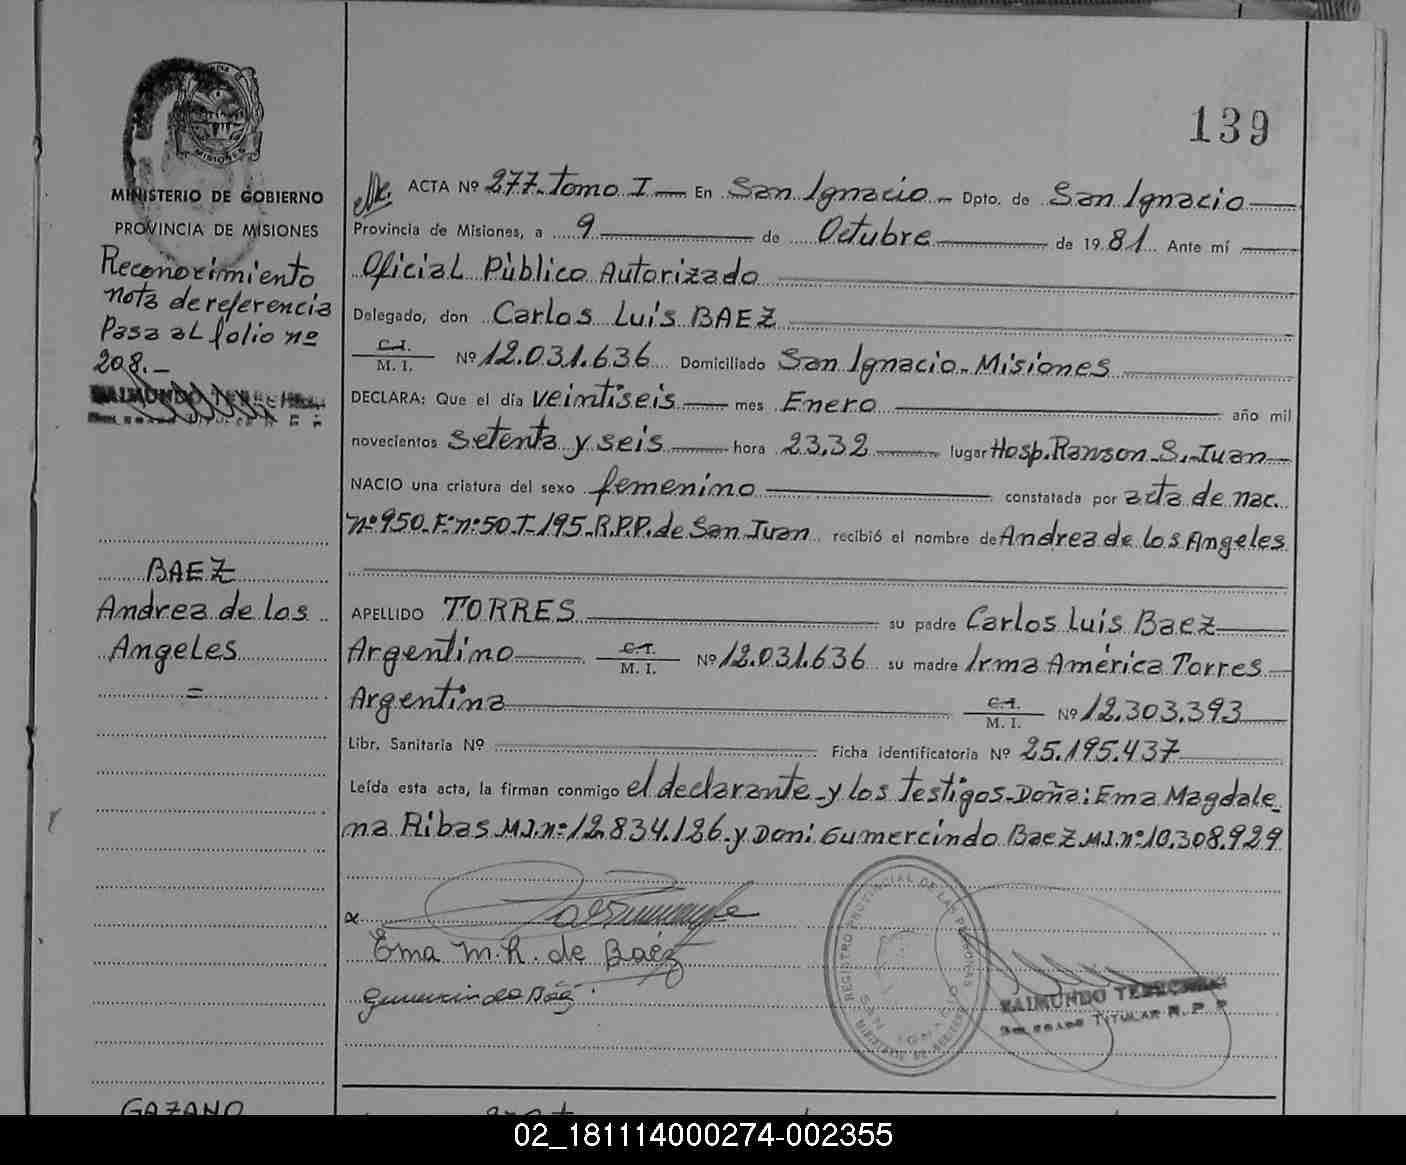 139
MISIONES
MINISTERIO DE GOBIERNO
PROVINCIA DE MISIONES
Reconocimiento
nota de referencia
Pasa al folio nº
208.-
RAIMUNDO
BAEZ
Andrea de los
Angeles
=
ACTA Nº 277-Tomo I — En San Ignacio - Dpto. de San Ignacio
Provincia de Misiones, a 9 de Octubre de 1981. Ante mí
Oficial Público Autorizado
Delegado, don Carlos Luis BAEZ
C.I. / M. I. Nº 12.031.636 Domiciliado San Ignacio-Misiones
DECLARA: Que el día veintiseis mes Enero año mil
novecientos setenta y seis hora 23,32 lugar Hosp. Rawson-S.-Juan
NACIO una criatura del sexo femenino constatada por acta de nac.
nº 950-Fº nº 50-T-195-R.P.P. de San Juan recibió el nombre de Andrea de los Angeles
APELLIDO TORRES su padre Carlos Luis Baez
Argentino C.I. / M. I. Nº 12.031.636 su madre Irma América Torres
Argentina C.I. / M. I. Nº 12.303.393
Libr. Sanitaria Nº Ficha identificatoria Nº 25.195.437
Leída esta acta, la firman conmigo el declarante-y los testigos-Doña: Ema Magdale-
na Ribas M.I. nº 12.834.126-y Don: Gumercindo Baez M.I. nº 10.308.929
Ema M.R. de Baéz
Gumercindo Báez
REGISTRO PROVINCIAL DE LAS PERSONAS
RAIMUNDO
DELEGADO TITULAR R. P. P.
GAZANO
02_181114000274-002355